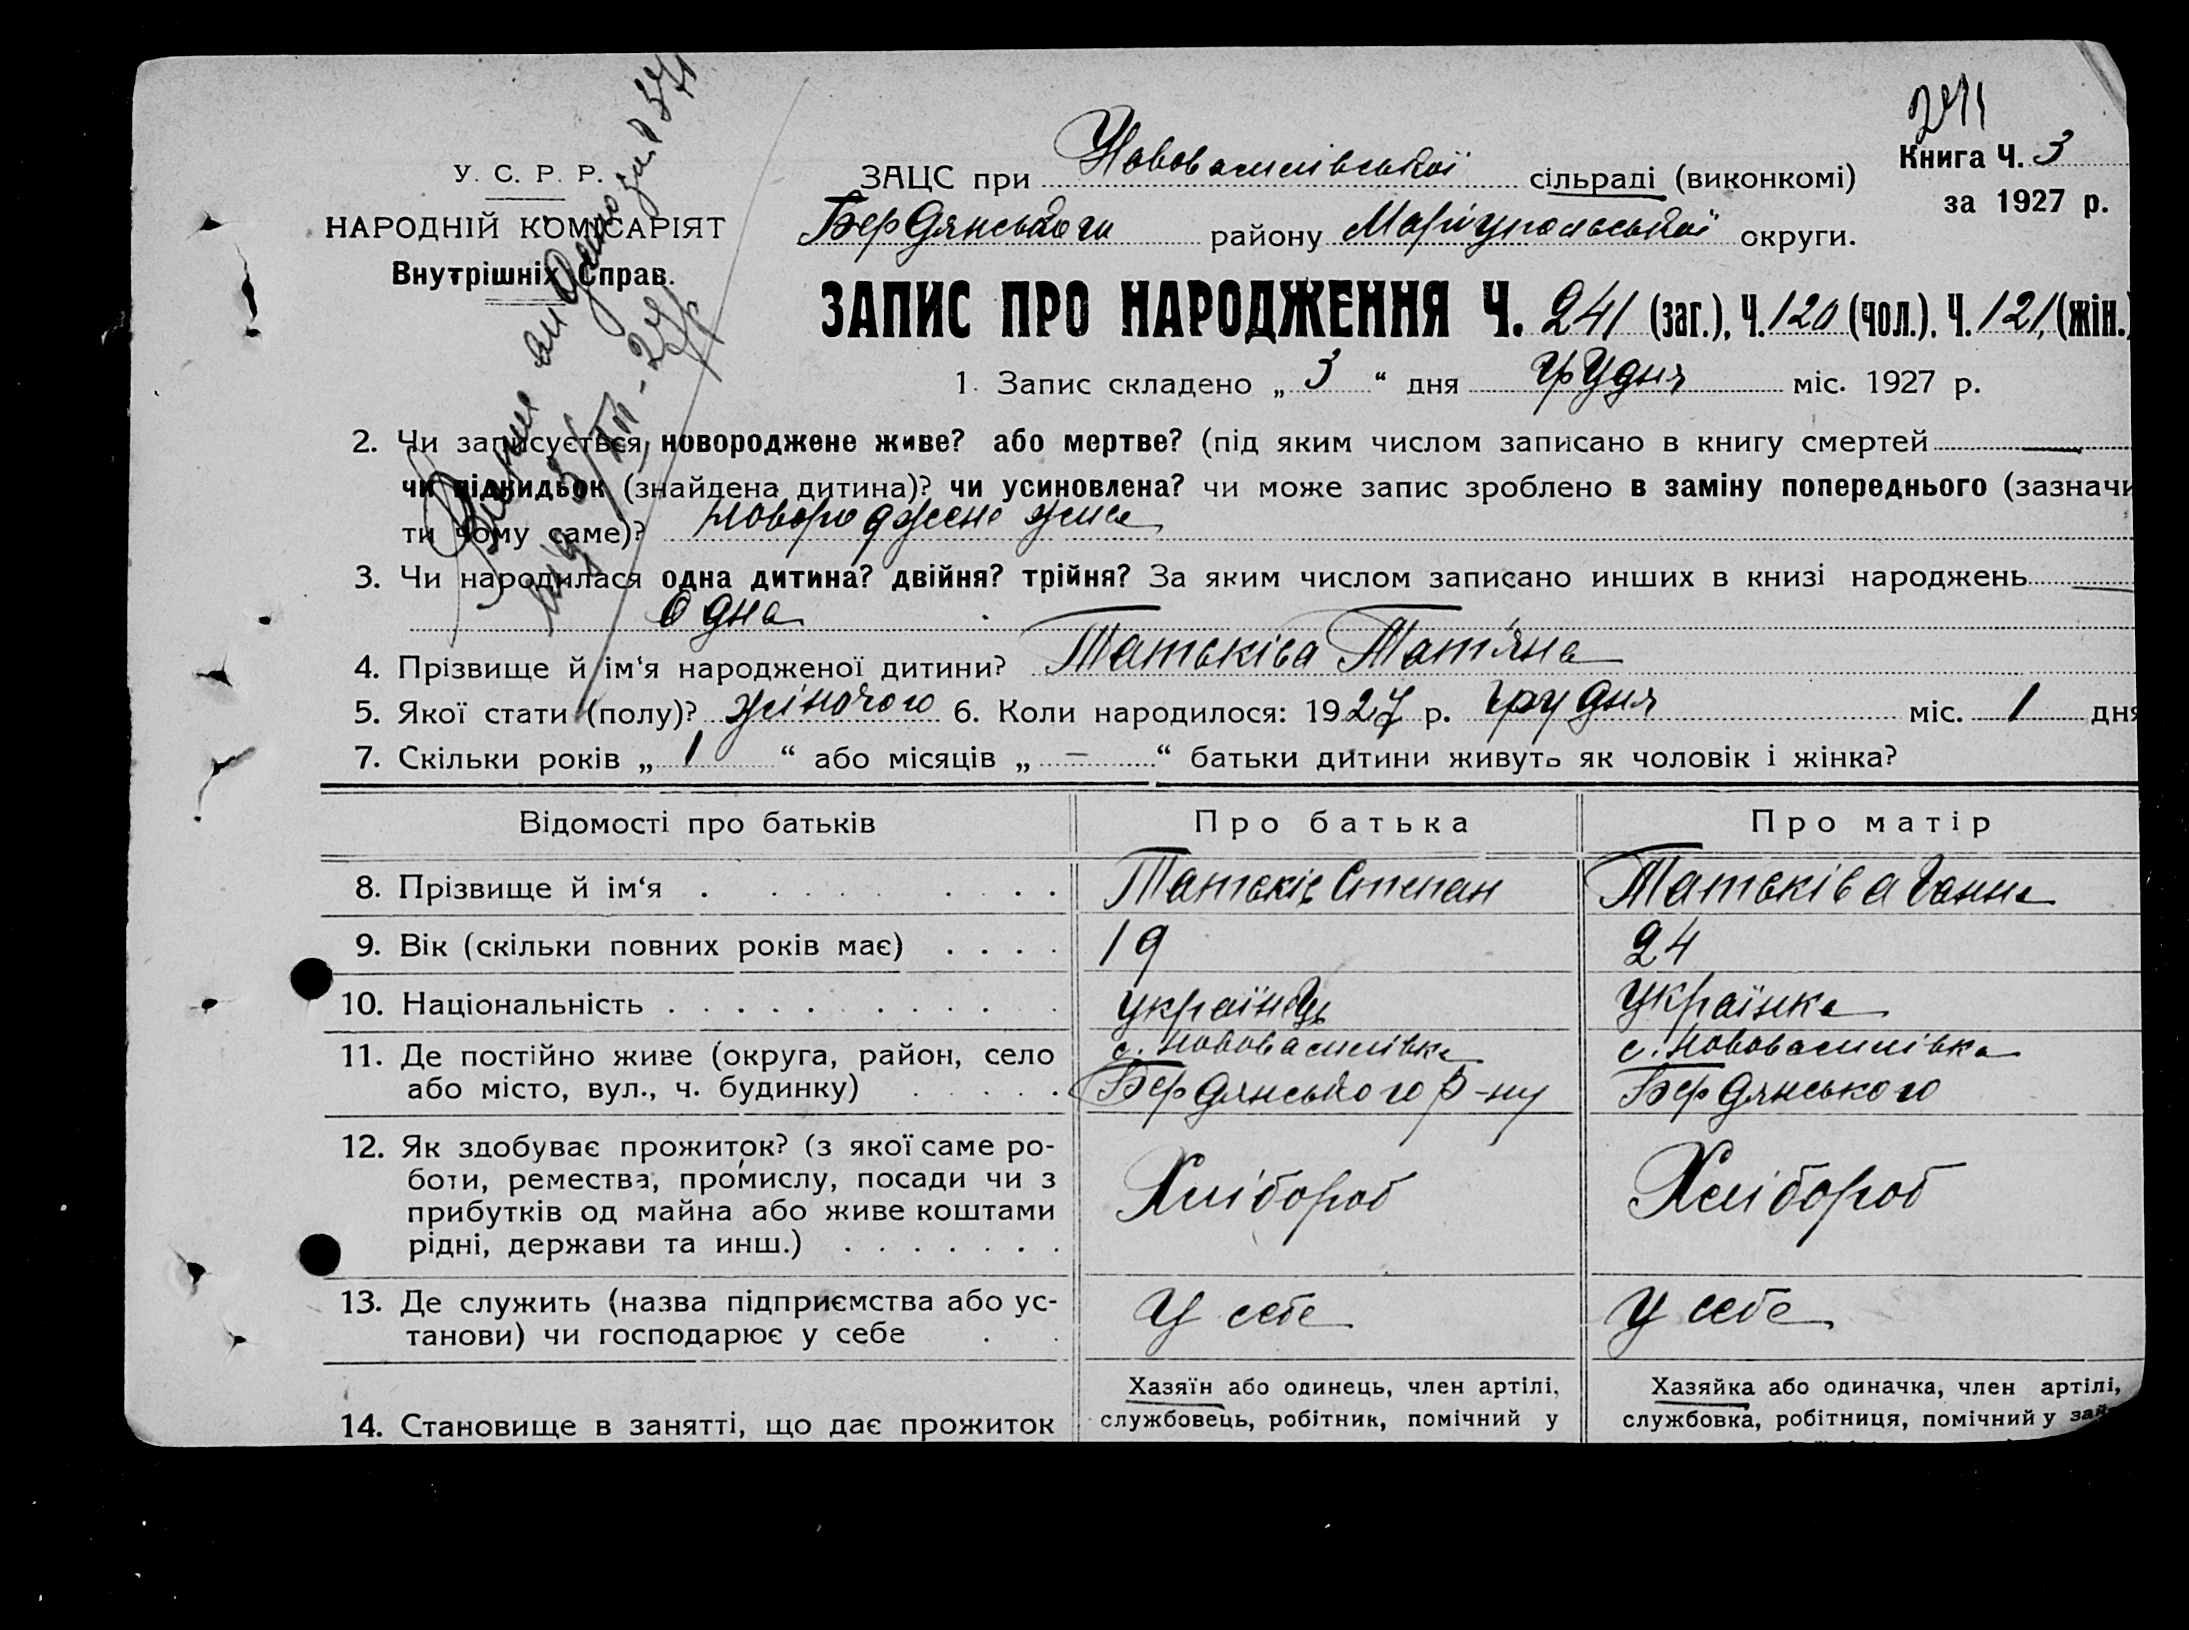 241
У. С. Р. Р.
НАРОДНІЙ КОМІСАРІЯТ
Внутрішніх Справ.
ЗАЦС при Нововасилівської сільраді (виконкомі)
Книга Ч. 3
за 1927 р.
Бердянського району Маріупольської округи.
ЗАПИС ПРО НАРОДЖЕННЯ Ч. 241 (заг.), Ч. 120 (чол.), Ч. 121, (жін.)
1. Запис складено „ 3 “ дня грудня міс. 1927 р.
2. Чи записується новороджене живе? або мертве? (під яким числом записано в книгу смертей —
чи підкидьок (знайдена дитина)? чи усиновлена? чи може запис зроблено в заміну попереднього (зазначи
ти чому саме)? новороджене живе
3. Чи народилася одна дитина? двійня? трійня? За яким числом записано инших в книзі народжень —
одна
4. Прізвище й ім‘я народженої дитини? Татьківа Тат'яна
5. Якої стати (полу)? жіночого 6. Коли народилося: 1927 р. грудня міс. 1 дня
7. Скільки років „ 1 “ або місяців „ — “ батьки дитини живуть як чоловік і жінка?
Відомості про батьків Про батька Про матір
8. Прізвище й ім‘я Татьків Степан Татьківа Ганна
9. Вік (скільки повних років має) 19 24
10. Національність українець українка
11. Де постійно живе (округа, район, село с. Нововасилівка с. Нововасилівка
або місто, вул., ч. будинку) Бердянського р-ну Бердянського
12. Як здобуває прожиток? (з якої саме ро-
боти, ремества, промислу, посади чи з Хлібороб Хлібороб
прибутків од майна або живе коштами
рідні, держави та инш.)
13. Де служить (назва підприємства або ус- У себе У себе
танови) чи господарює у себе
Хазяїн або одинець, член артілі, Хазяйка або одиначка, член артілі,
14. Становище в занятті, що дає прожиток службовець, робітник, помічний у службовка, робітниця, помічний у зай